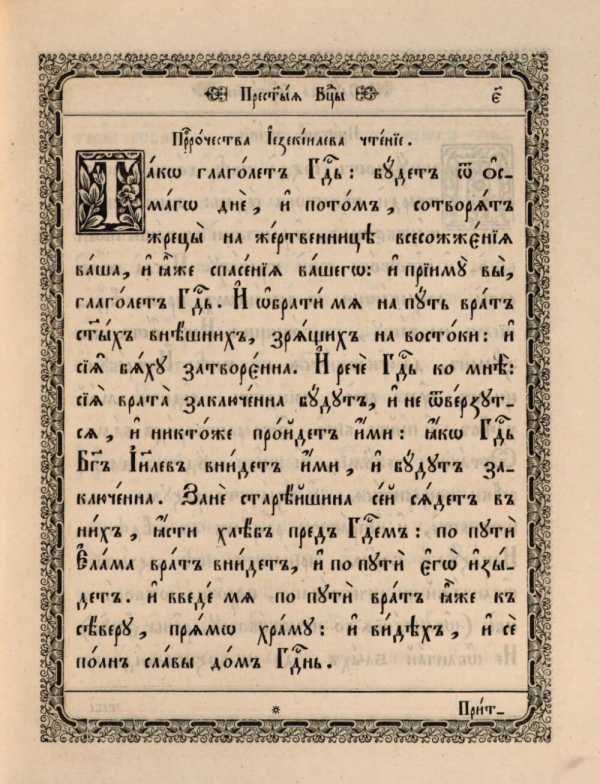 Прест҃ы́ѧ Бц҃ы є҃
Прⷪ҇ро́чества І҆езекі́илева чте́нїе.
Та́кѡ глаго́летъ Гдⷭ҇ь: бꙋ́детъ ѿ ѻ҆с-
ма́гѡ днѐ, и҆ пото́мъ, сотворѧ́тъ
жрецы̀ на же́ртвенницѣ всесожжє́нїѧ
ва̑ша, и҆ ꙗ҆̀же спасе́нїѧ ва́шегѡ: и҆ прїимꙋ̀ вы̀,
глаго́летъ Гдⷭ҇ь. И҆ ѡ҆брати́ мѧ на пꙋ́ть вра́тъ
ст҃ы́хъ внѣ́шнихъ, зрѧ́щихъ на восто́ки: и҆
сїѧ̑ бѧ́хꙋ затворє́нна. И҆ речѐ Гдⷭ҇ь ко мнѣ̀:
сїѧ̑ врата̀ заключє́нна бꙋ́дꙋтъ, и҆ не ѿве́рзꙋт-
сѧ, и҆ никто́же про́йдетъ и҆́ми: ꙗ҆́кѡ Гдⷭ҇ь
Бг҃ъ І҆и҃левъ вни́детъ и҆́ми, и҆ бꙋ́дꙋтъ за-
ключє́нна. Занѐ старѣ́йшина се́й сѧ́детъ въ
ни́хъ, ꙗ҆́сти хлѣ́бъ предъ Гдⷭ҇емъ: по пꙋтѝ
Є҆ла́ма вра́тъ вни́детъ, и҆ по пꙋтѝ є҆гѡ̀ и҆зы́-
детъ. и҆ введе́ мѧ по пꙋтѝ вра́тъ ꙗ҆̀же къ
сѣ́верꙋ, прѧ́мѡ хра́мꙋ: и҆ ви́дѣхъ, и҆ сѐ
по́лнъ сла́вы до́мъ Гдⷭ҇нь.
При́т-